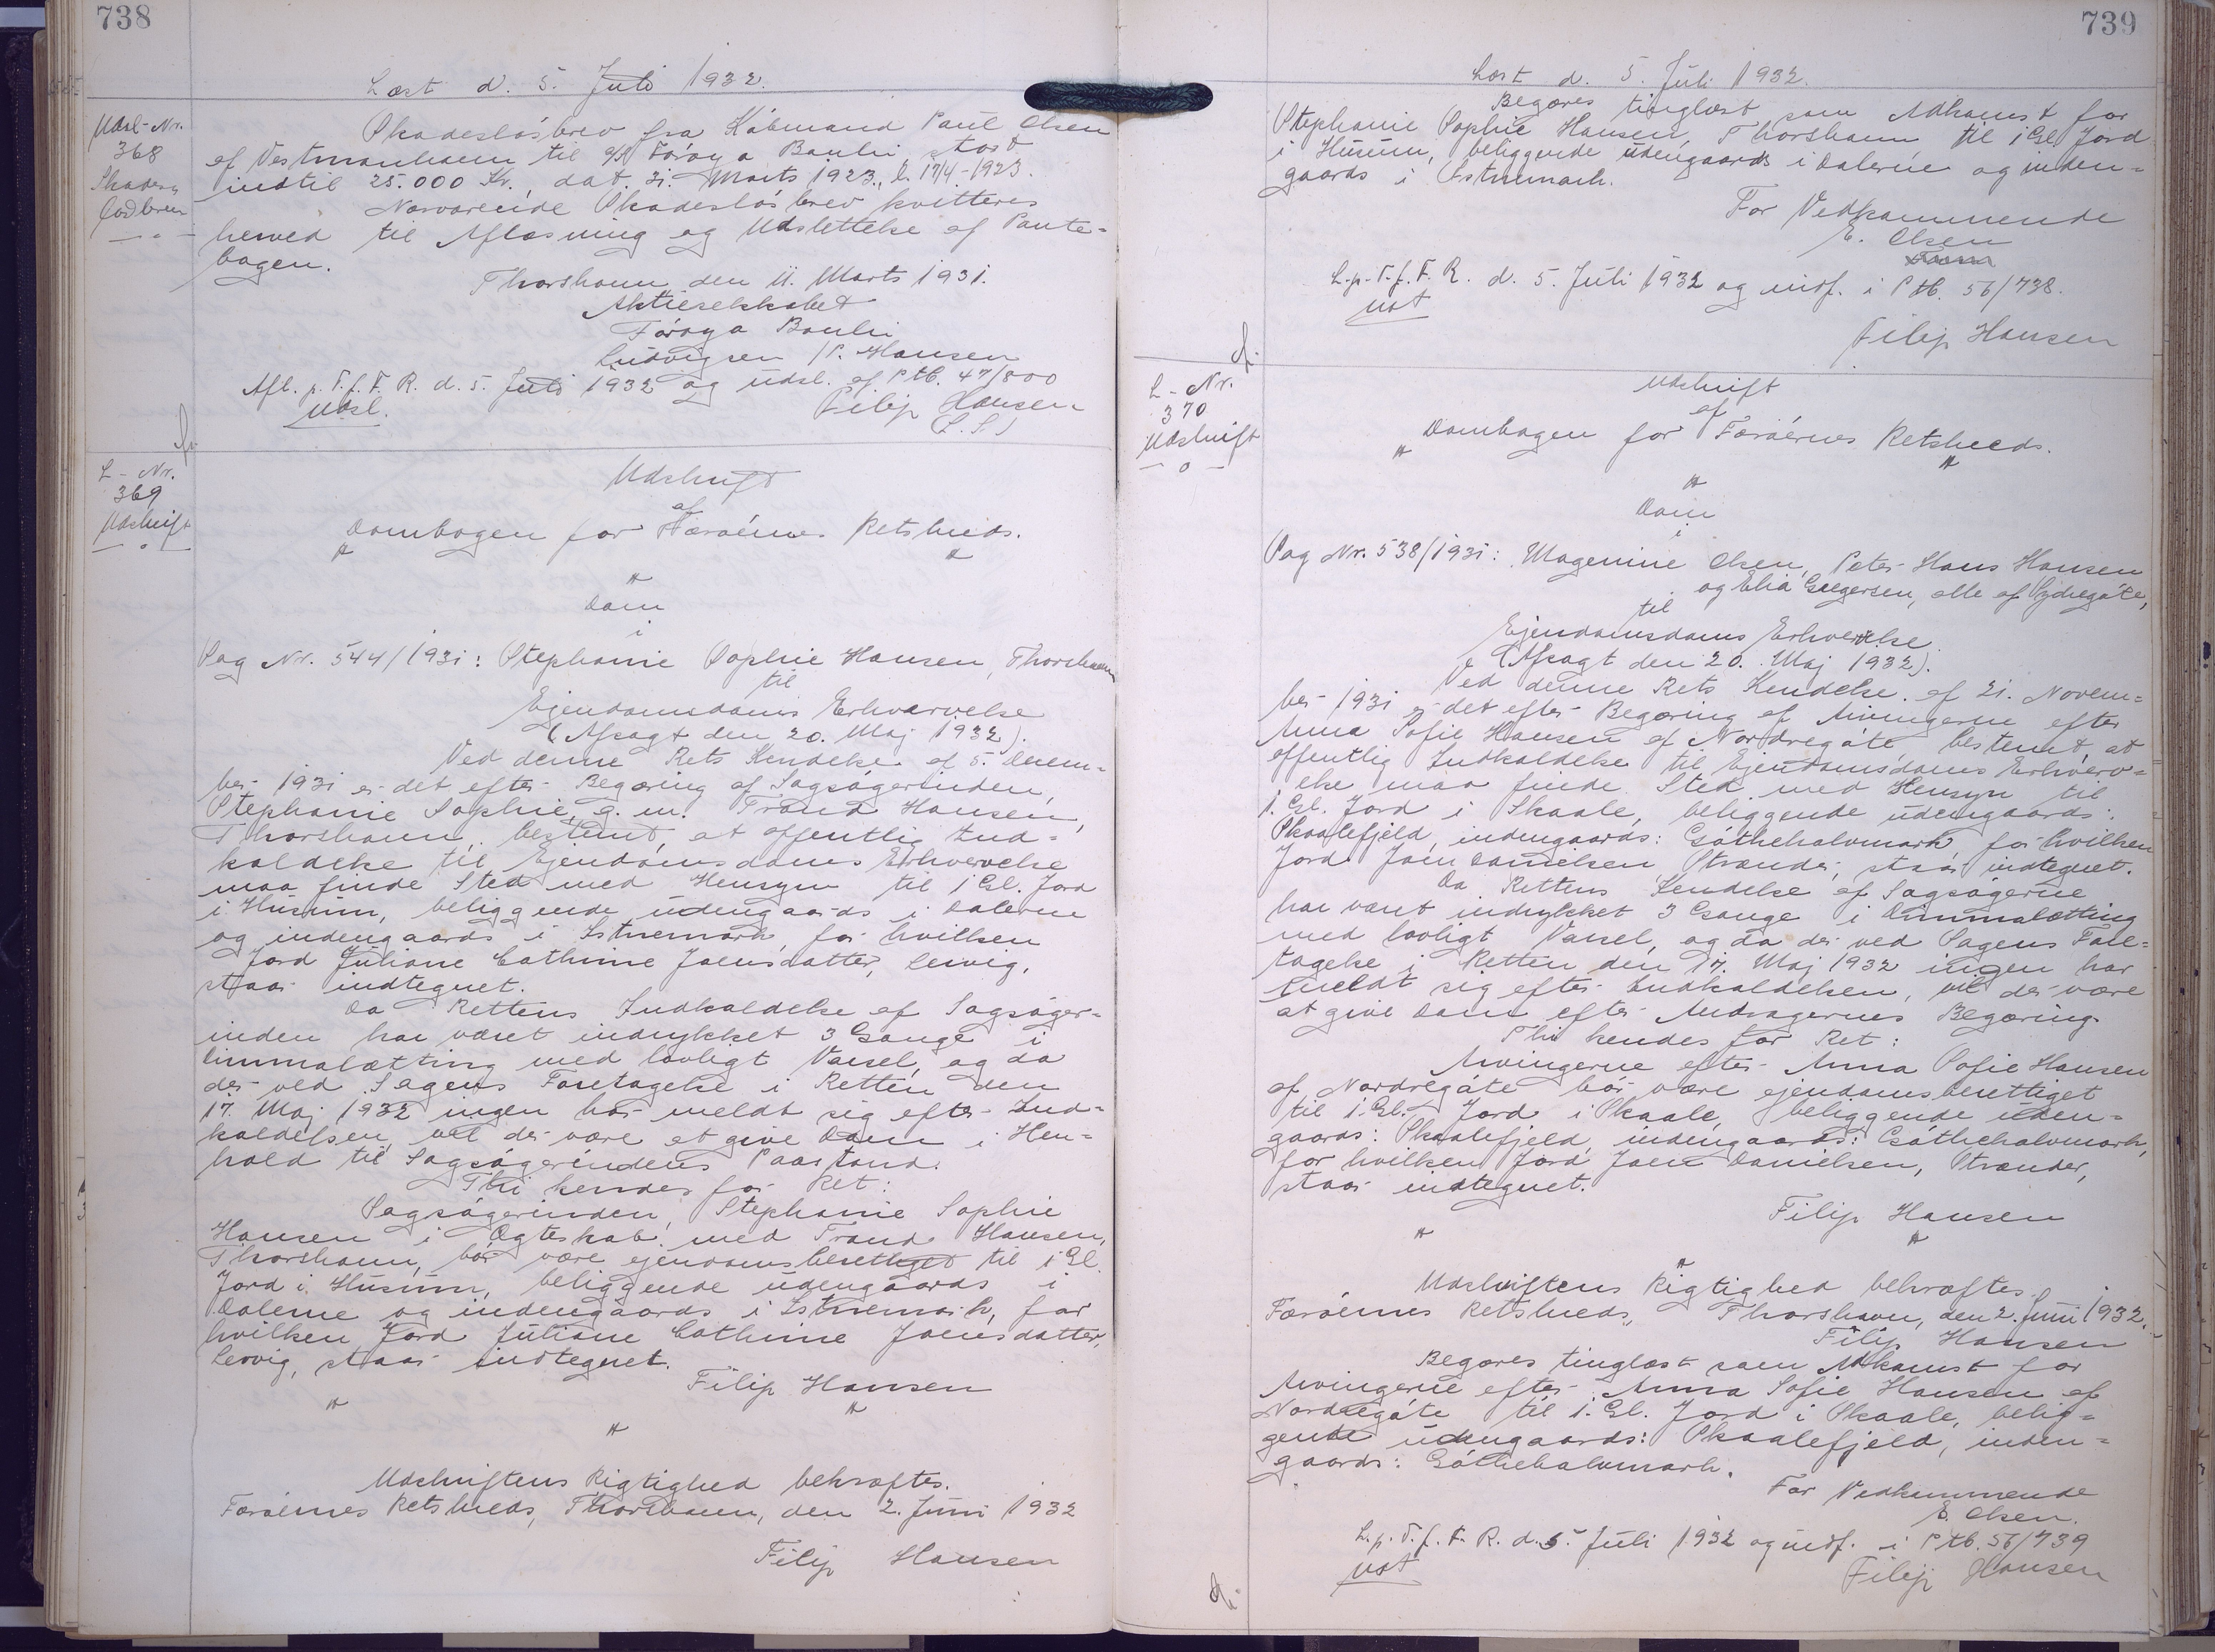 738
Læst d. 5. Juli 1932.
Udsl-Nr.
368
Skadesl.
Skadesløsbrev fra Købmand Paul Olsen
af Vestmanhavn til A/S Føroya Banki stort
indtil 25.000 Kr., dat. 31. Marts 1923., l. 17/4-1923.
Nærværende Skadesløsbrev kvitteres
herved til Aflæsning og Udslettelse af Pante-
bogen.
Thorshavn den 11. Marts 1931.
Aktieselskabet
Føroya Banki
Ludvigsen /P. Hansen
Afl. p. T. f. F. R. d. 5. Juli 1932 og udsl. af Ptb. 47/800
Udsl. Filip Hansen
(L.S.)
L-Nr.
369
Udskrift
Udskrift
af
Dombogen for Færøernes Retskreds.
Dom
i
Sag Nr. 544/1931: Stephanie Sophie Hansen, Thorshavn
til
Ejendomsdoms Erhvervelse
(Afsagt den 20. Maj 1932).
Ved denne Rets Kendelse af 5. Decem-
ber 1931 er det efter Begæring af Sagsøgerinden,
Stephanie Sophie, g. m. Trond Hansen,
Thorshavn, bestemt, at offentlig Ind-
kaldelse til Ejendomsdoms Erhvervelse
maa finde Sted med Hensyn til 1 Gl. Jord
i Husum, beliggende udengaards i Dalerne
og indengaards i Istnemark, for hvilken
Jord Juliane Cathrine Joensdatter, Lervig,
staar indtegnet.
Da Rettens Indkaldelse af Sagsøger-
inden har været indrykket 3 Gange i
Dimmalætting med lovligt Varsel, og da
der ved Sagens Foretagelse i Retten den
17. Maj 1932 ingen har meldt sig efter Ind-
kaldelsen, vil der være at give Dom i Hen-
hold til Sagsøgerindens Paastand.
Thi kendes for Ret:
Sagsøgerinden, Stephanie Sophie
Hansen i Ægteskab med Trond Hansen,
Thorshavn, bør være ejendomsberettiget til 1 Gl.
Jord i Husum, beliggende udengaards i
Dalerne og indengaards i Istnemark, for
hvilken Jord Juliane Cathrine Joensdatter,
Lervig, staar indtegnet.
Filip Hansen
Udskriftens Rigtighed bekræftes.
Færøernes Retskreds, Thorshavn, den 2. Juni 1932
Filip Hansen
739
Læst d. 5. Juli 1932.
Begæres tinglæst som Adkomst for
Stephanie Sophie Hansen, Thorshavn til 1 Gl. Jord
i Husum, beliggende udengaards i Dalerne og inden-
gaards i Istnemark.
For Vedkommende
E. Olsen
L. p. T. f. F. R. d. 5. Juli 1932 og indf. i Ptb. 56/738.
Filip Hansen
L-Nr.
370
Udskrift
Udskrift
af
Dombogen for Færøernes Retskreds.
Dom
i
Sag Nr. 538/1931: Magenine Olsen, Peter Hans Hansen
og Elia Gregersen, alle af Sydregøte,
til
Ejendomsdoms Erhvervelse
(Afsagt den 20. Maj 1932).
Ved denne Rets Kendelse af 21. Novem-
ber 1931 er det efter Begæring af Arvingerne efter
Anna Sofie Hansen af Nordregøte bestemt, at
offentlig Indkaldelse til Ejendomsdoms Erhverv-
else maa finde Sted med Hensyn til
1. Gl. Jord i Skaale, beliggende udengaards:
Skaalefjeld, indengaards: Gøthehalvmark, for hvilken
Jord Joen Danielsen Strænder, staar indtegnet.
Da Rettens Kendelse af Sagsøgerne
har været indrykket 3 Gange i Dimmalætting
med lovligt Varsel, og da der ved Sagens Fore-
tagelse i Retten den 17. Maj 1932 ingen har
meldt sig efter Indkaldelsen, vil der være
at give Dom efter Andragernes Begæring.
Thi kendes for Ret:
Arvingerne efter Anna Sofie Hansen
af Nordregøte bør være ejendomsberettiget
til 1. Gl. Jord i Skaale, beliggende uden-
gaards: Skaalefjeld, indengaards: Gøthehalvmark,
for hvilken Jord Joen Danielsen, Strænder,
staar indtegnet.
Filip Hansen
Udskriftens Rigtighed bekræftes.
Færøernes Retskreds, Thorshavn, den 2. Juni 1932.
Filip Hansen
Begæres tinglæst som Adkomst for
Arvingerne efter Anna Sofie Hansen af
Nordregøte til 1. Gl. Jord i Skaale, belig-
gende udengaards: Skaalefjeld, inden-
gaards: Gøthehalvmark.
For Vedkommende
E. Olsen.
L. p. T. f. F. R. d. 5. Juli 1932 og indf. i Ptb. 56/739
Filip Hansen